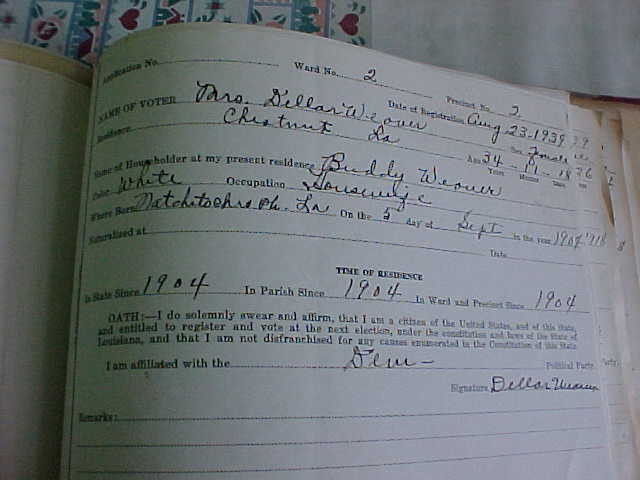 Application No. Ward No. 2 Precinct No. 2
NAME OF VOTER Mrs. Dellar Weaver Date of Registration Aug 23-1939
Residence Chestnut La Sex Female
Age 34 - 11 - 18 Years Months Days
Name of Householder at my present residence Buddy Weaver
Color White Occupation Housewife
Where Born Natchitoches Ph. La On the 5 day of Sept in the year 1904
Naturalized at Date
TIME OF RESIDENCE
In State Since 1904 In Parish Since 1904 In Ward and Precinct Since 1904
OATH:—I do solemnly swear and affirm, that I am a citizen of the United States, and of this State,
and entitled to register and vote at the next election, under the constitution and laws of the State of
Louisiana, and that I am not disfranchised for any causes enumerated in the Constitution of this State.
I am affiliated with the Dem- Political Party.
Signature Dellar Weaver
Remarks: